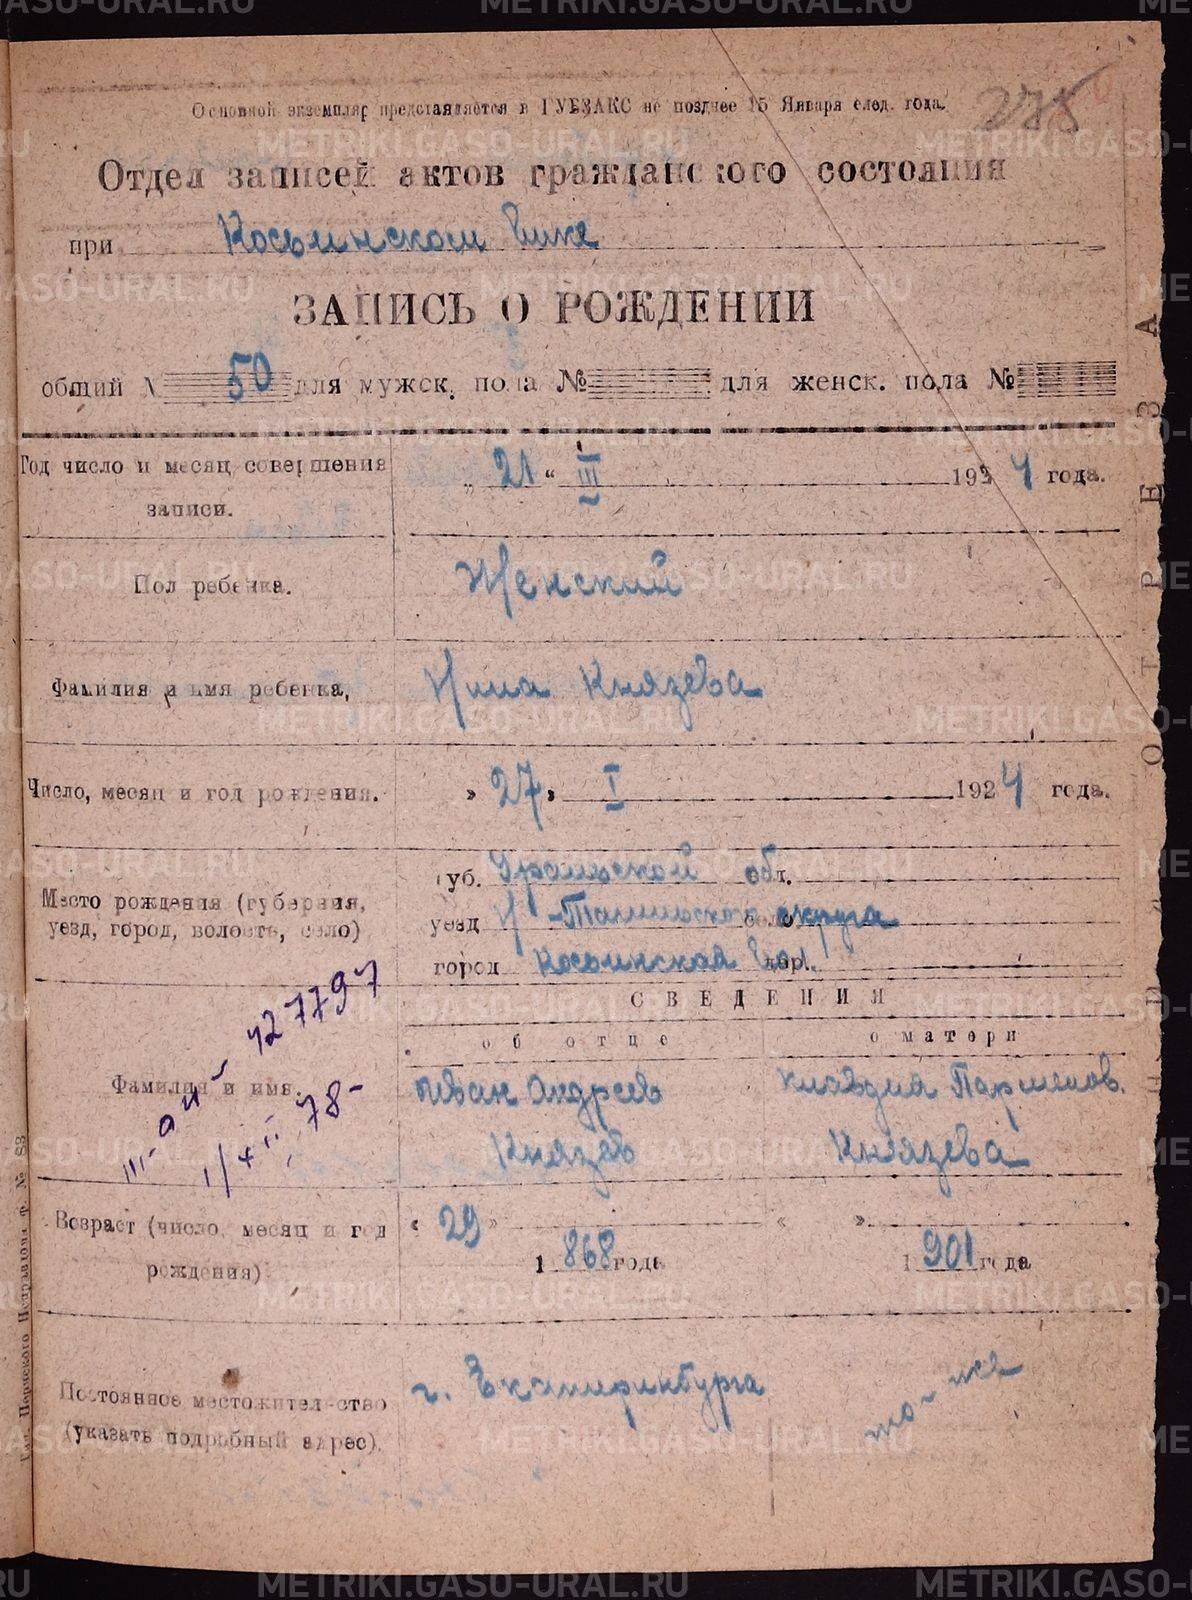 Основной экземпляр представляется в ГУБЗАКС не позднее 15 Января след. года.
275
Отдел записей актов гражданского состояния
при Косьинском Вике
ЗАПИСЬ О РОЖДЕНИИ
общий № 50 для мужск. пола № для женск. пола №
Год число и месяц совершения записи.
„ 21 “ III 1924 года.
Пол ребенка.
Женский
Фамилия и имя ребенка,
Нина Князева
Число, месяц и год рождения.
» 27 » I 1924 года.
Место рождения (губерния, уезд, город, волость, село)
губ. Уральской обл.
уезд Н-Тагильского округа
город Косьинской
СВЕДЕНИЯ
об отце
о матери
Фамилия и имя.
Иван Андреев Князев
Клавдия Парменов. Князева
III-АИ 427797
1/XII 78-
Возраст (число, месяц и год рождения)
« 29 » 1868 года
« » 1901 года
Постоянное местожительство (указать подробный адрес).
г. Екатеринбурга
то-же
ОТРЕЗ
METRIKI.GASO-URAL.RU